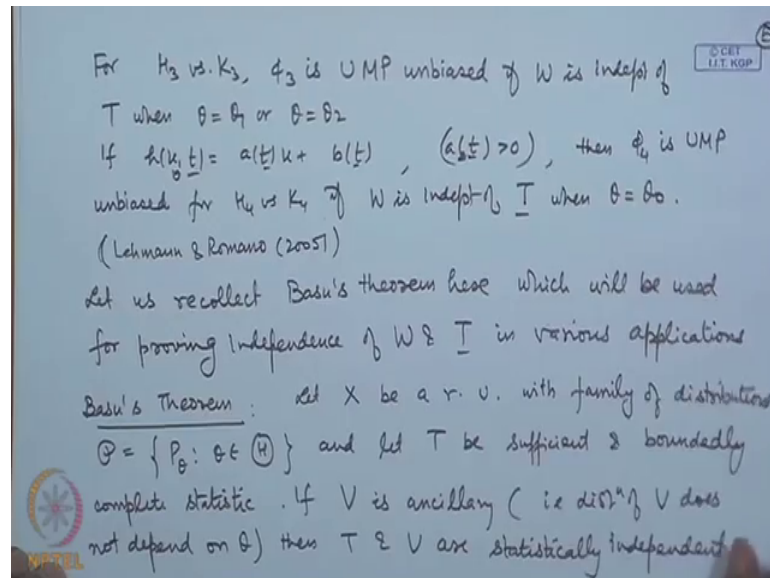 For H₃ vs. K₃, ϕ₃ is UMP unbiased if W is indept of
T when θ = θ₁ or θ = θ₂
If h(u, t) = a(t) u + b(t) , (a(t) > 0) , then ϕ₄ is UMP
unbiased for H₄ vs K₄ if W is indept of T when θ = θ₀.
(Lehmann & Romano (2005))
Let us recollect Basu's theorem here which will be used
for proving independence of W & T in various applications
Basu's Theorem : Let X be a r. v. with family of distributions
𝒫 = { P_θ : θ ∈ Ⓗ } and let T be sufficient & boundedly
complete statistic. If V is ancillary ( ie distⁿ of V does
not depend on θ) then T & V are statistically independent
© CET
I.I.T. KGP
NPTEL